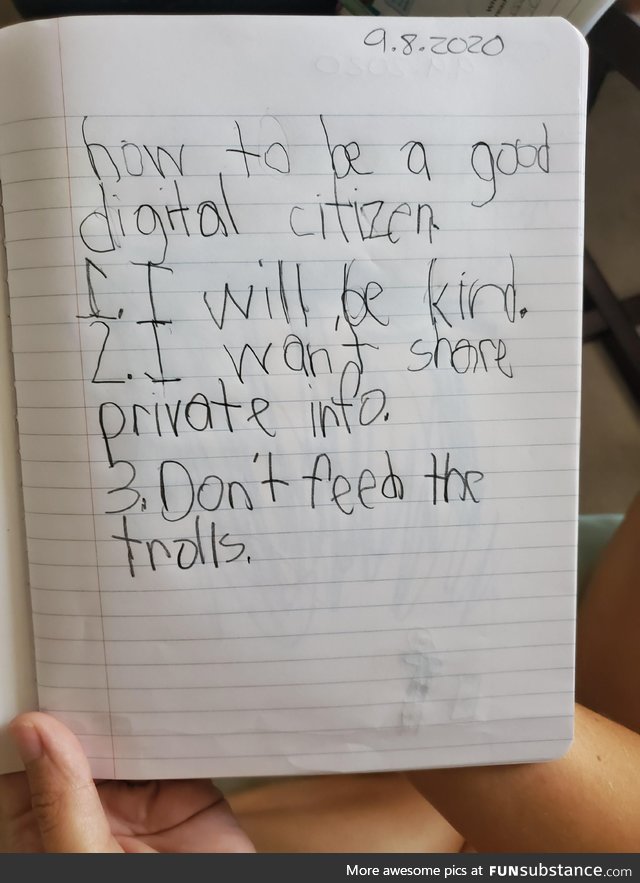 9.8.2020
how to be a good
digital citizen.
1. I will be kind.
2. I want share
private info.
3. Don't feed the
trolls.
More awesome pics at FUNsubstance.com